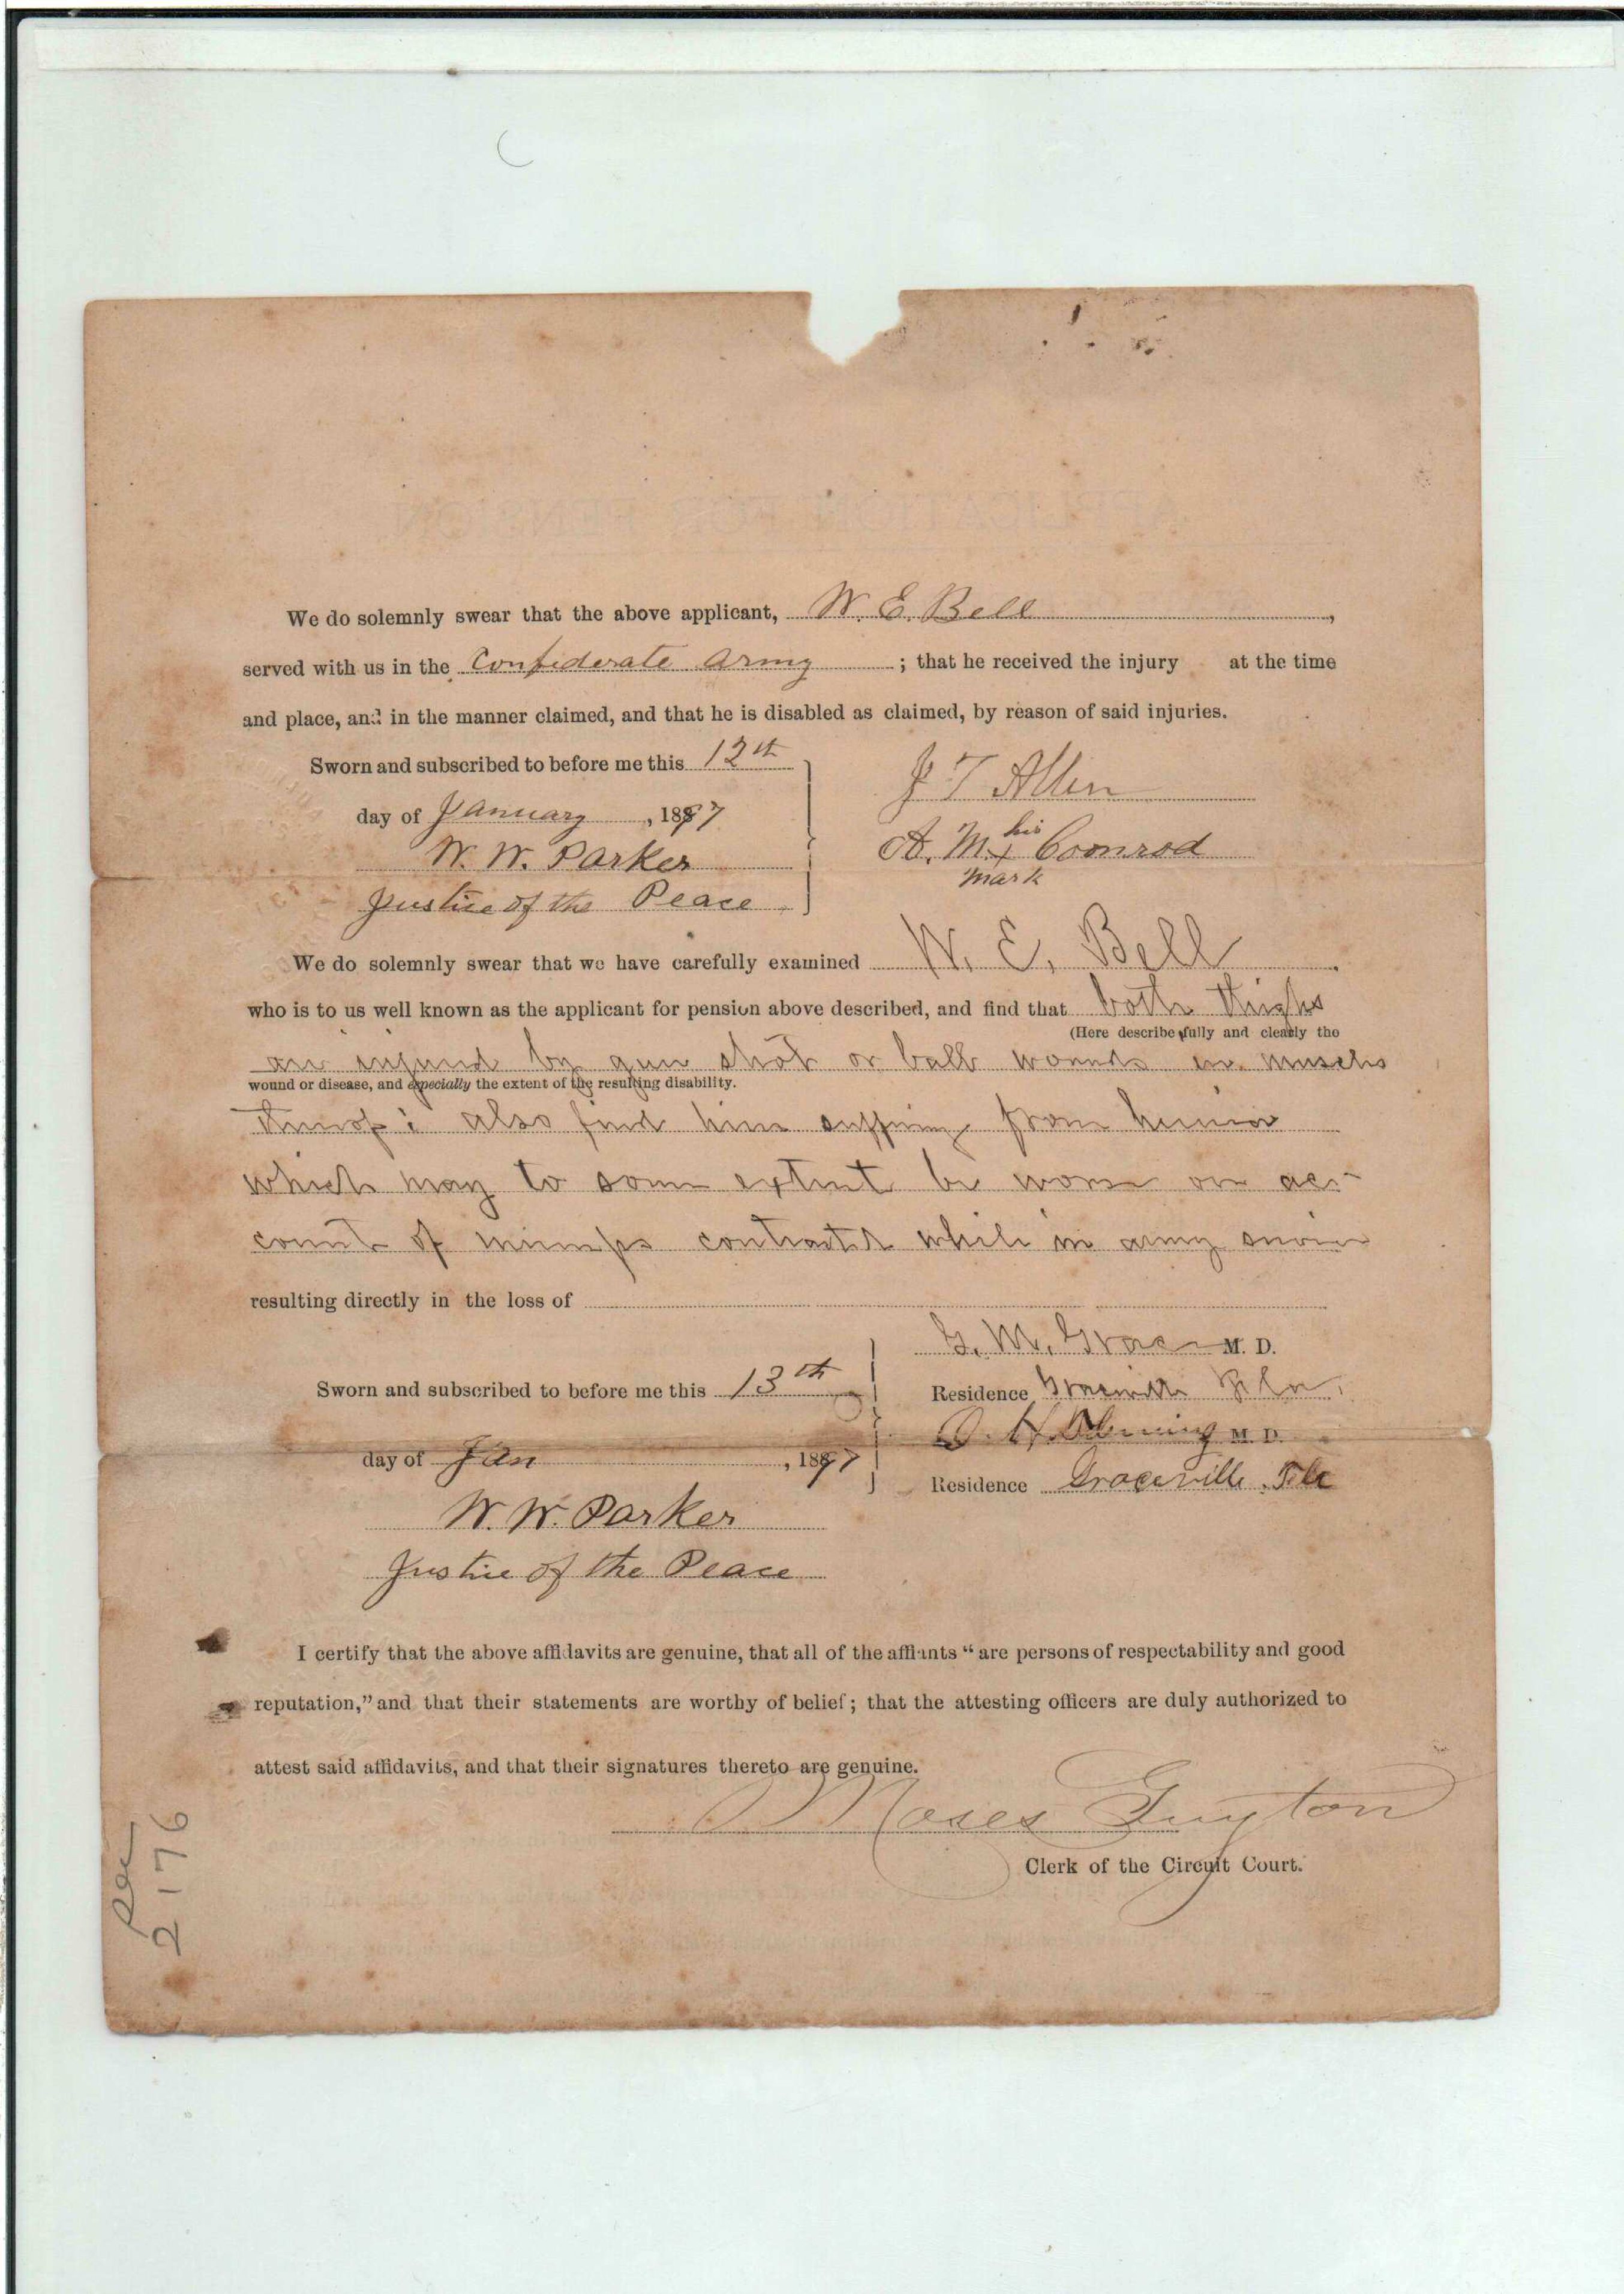 We do solemnly swear that the above applicant, W. E. Bell,
served with us in the Confederate Army ; that he received the injury at the time
and place, and in the manner claimed, and that he is disabled as claimed, by reason of said injuries.
Sworn and subscribed to before me this 12th
day of January, 1897
W. W. Parker
Justice of the Peace
J T Allen
A. M. his x mark Coonrod
We do solemnly swear that we have carefully examined W. E. Bell.
who is to us well known as the applicant for pension above described, and find that both thighs
(Here describe fully and clearly the
are injured by gun shot or ball wounds in muscles
wound or disease, and especially the extent of the resulting disability.
thereof; also find him suffering from hernia
which may to some extent be worse on ac-
count of mumps contracted while in army service
resulting directly in the loss of
G. M. Grace M. D.
Sworn and subscribed to before me this 13th
Residence Graceville Fla.
M. D.
day of Jan, 1897
Residence Graceville Fla
W. W. Parker
Justice of the Peace
I certify that the above affidavits are genuine, that all of the affiants "are persons of respectability and good
reputation," and that their statements are worthy of belief; that the attesting officers are duly authorized to
attest said affidavits, and that their signatures thereto are genuine.
Moses Guyton
Clerk of the Circuit Court.
2176
APPLICATION FOR PENSION